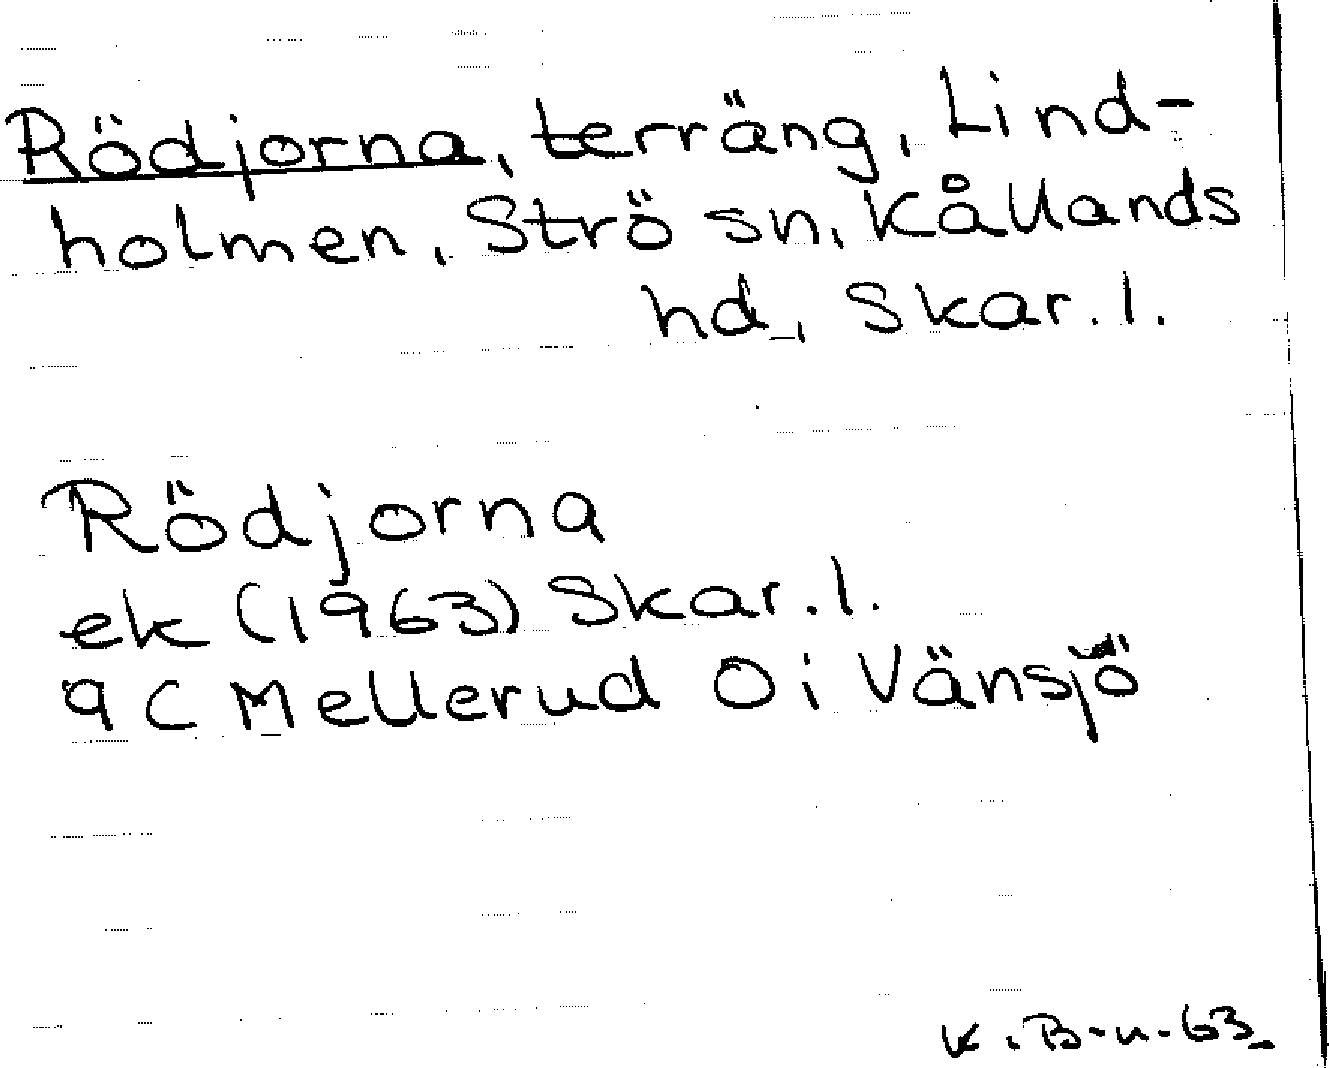 Rödjorna, terräng, Lind-
holmen, Strö sn, Kållands
hd, Skar.l.
Rödjorna
ek (1963) Skar.l.
9C Mellerud Ö i Vänsjö
K. B-n-63